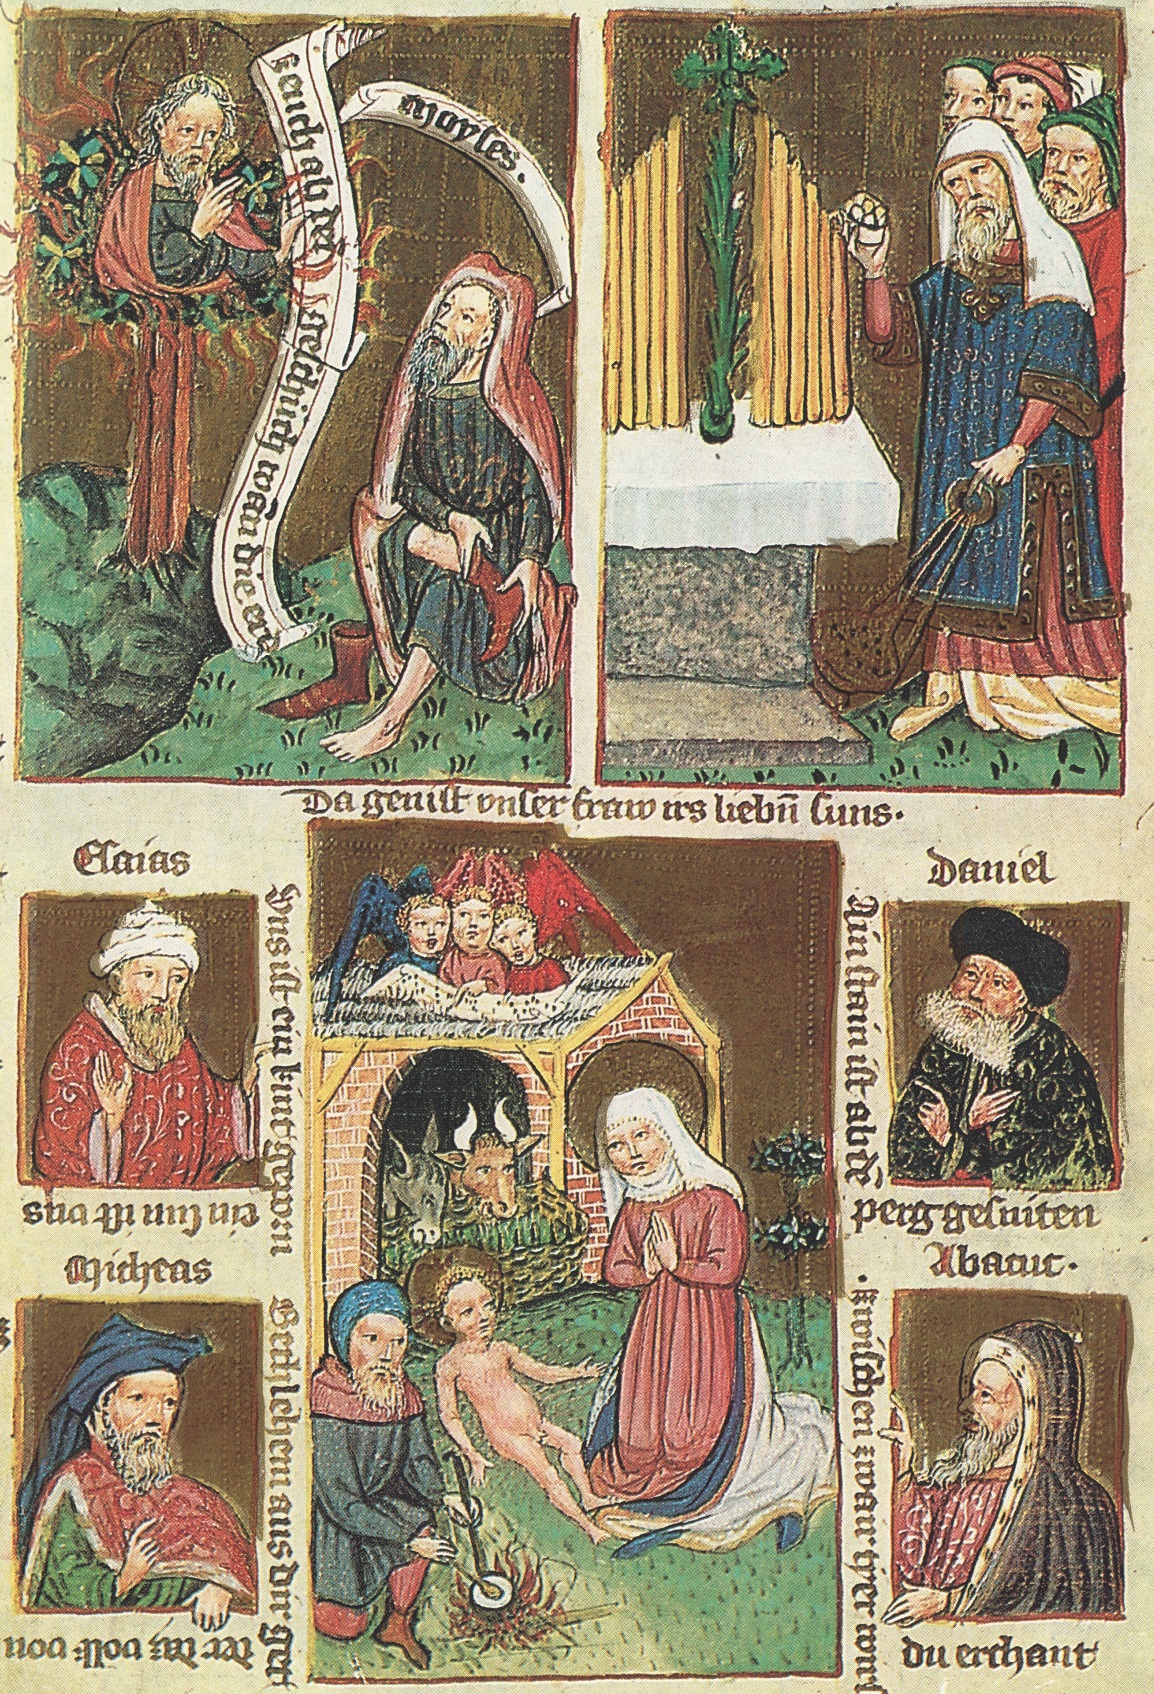 moyses.
zeuch ab dei geschüch wan die erd
Da genist vnser fraw irs liebn̄ suns.
Esaias
Uns ist ein kint geporn
ein sun ist vns
Daniel
Ain stain ist ab dē
perg gesniten
Micheas
Bethlehem aus dir get
der daz volk von
Abacuc.
zwischen zwain tyer wirst
du erchant